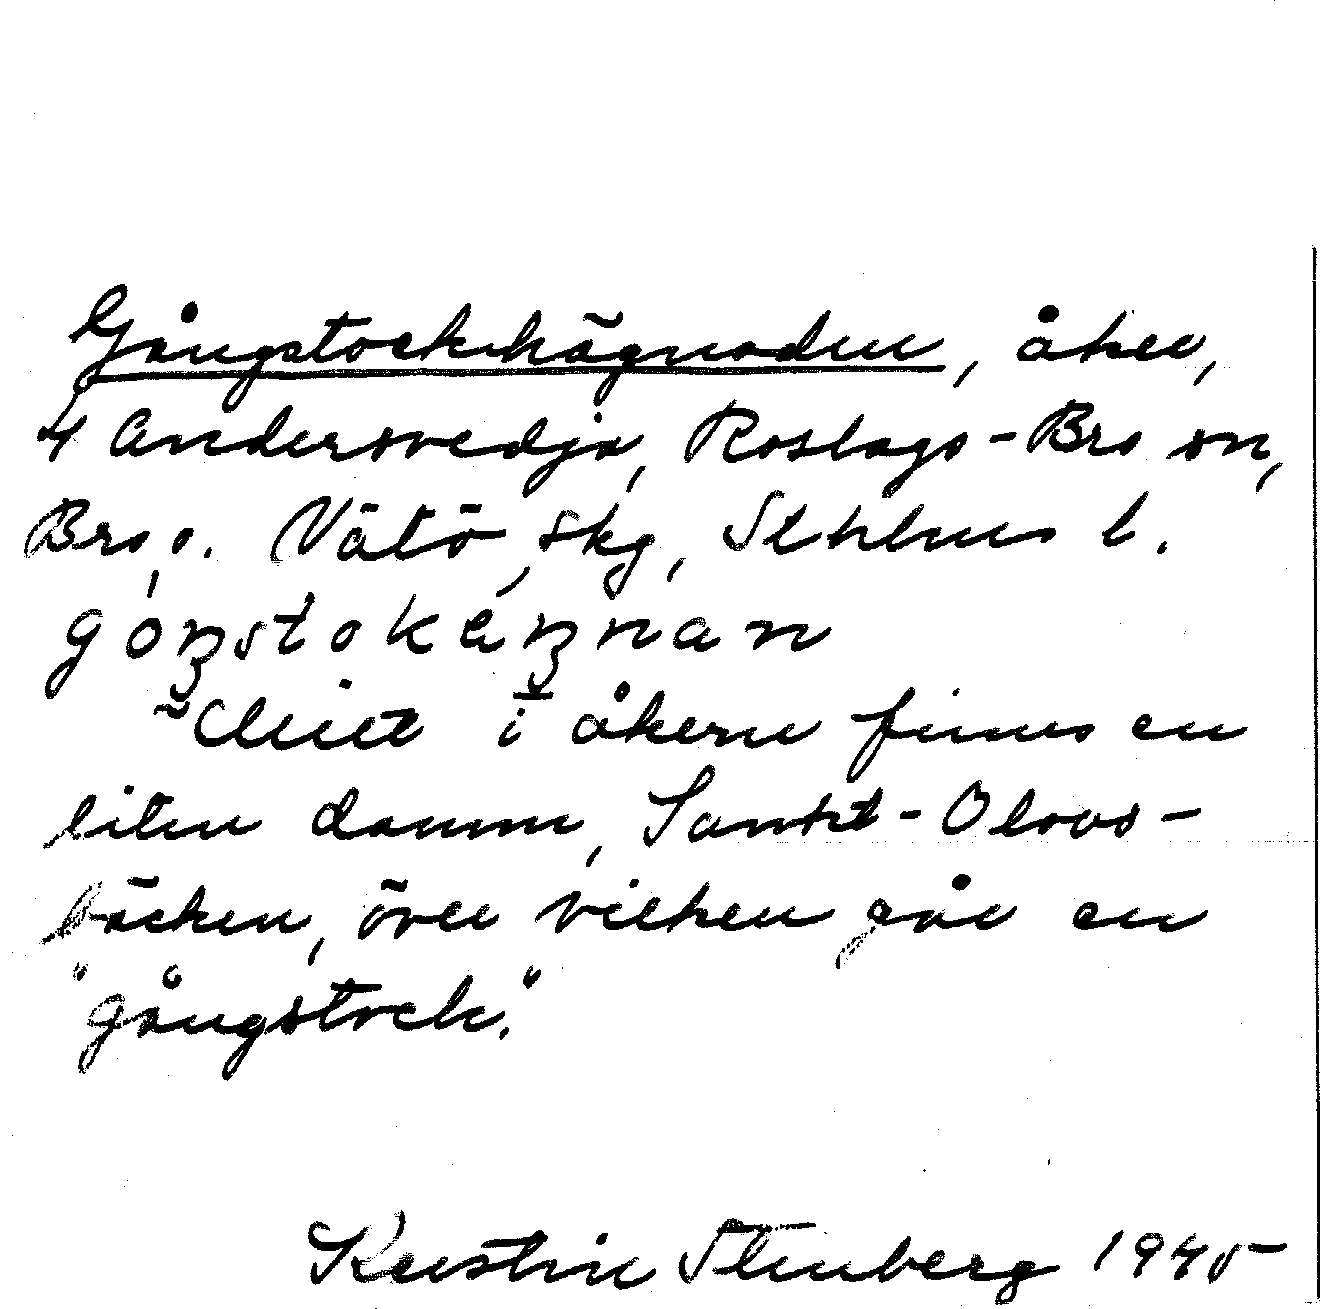 Gångstockhägnaden, åker,
4 Andersvedja, Roslags-Bro sn,
Bro o. Vätö skg, Sthlms l.
Mitt i åkern finns en
liten damm, Sankt-Olovs-
bäcken, över vilken går en
"gångstock."
Kerstin Stenberg 1945